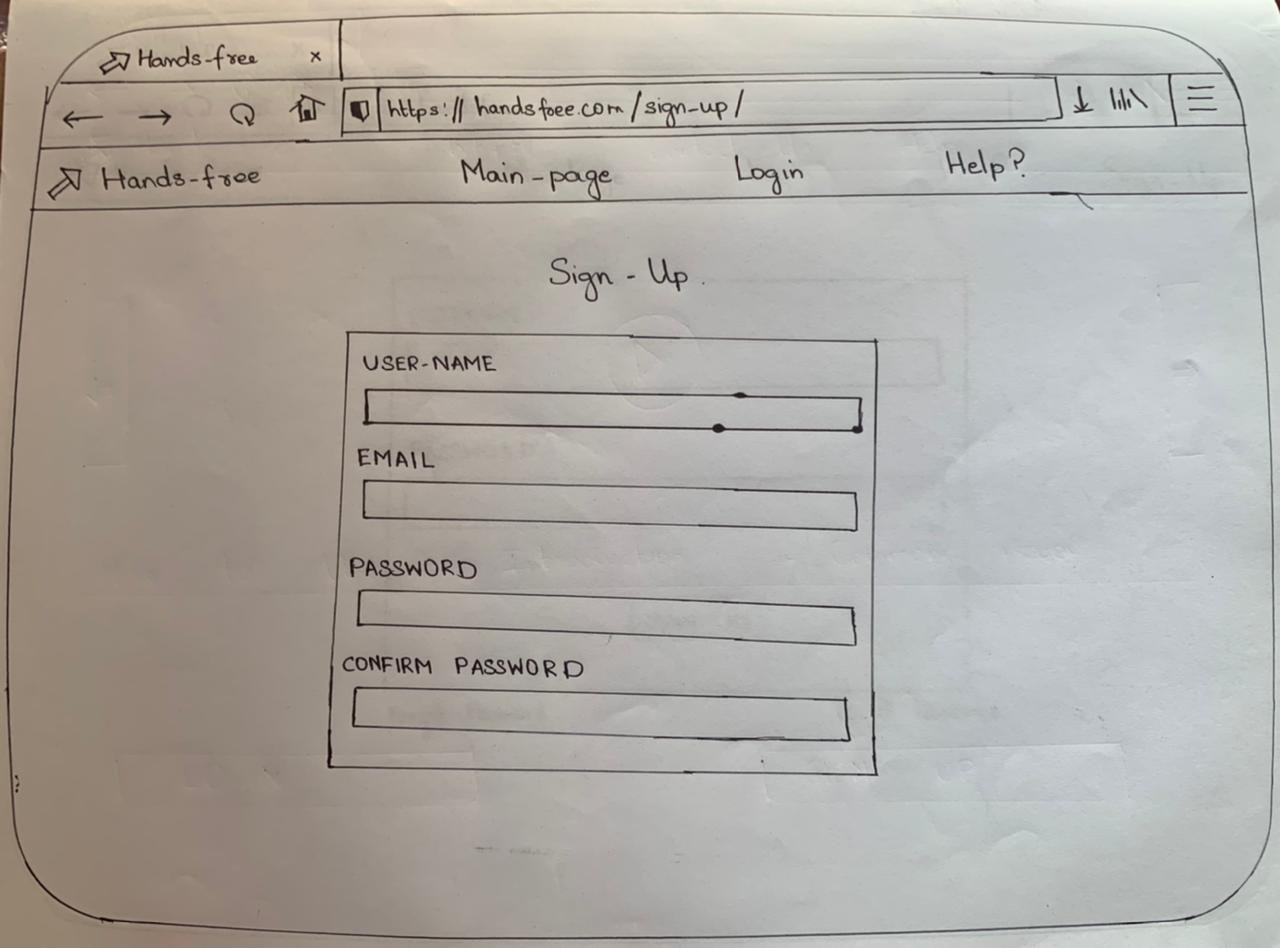 Hands-free x
https:// handsfree.com/sign-up/
Hands-free Main-page Login Help?
Sign-Up.
USER-NAME
EMAIL
PASSWORD
CONFIRM PASSWORD